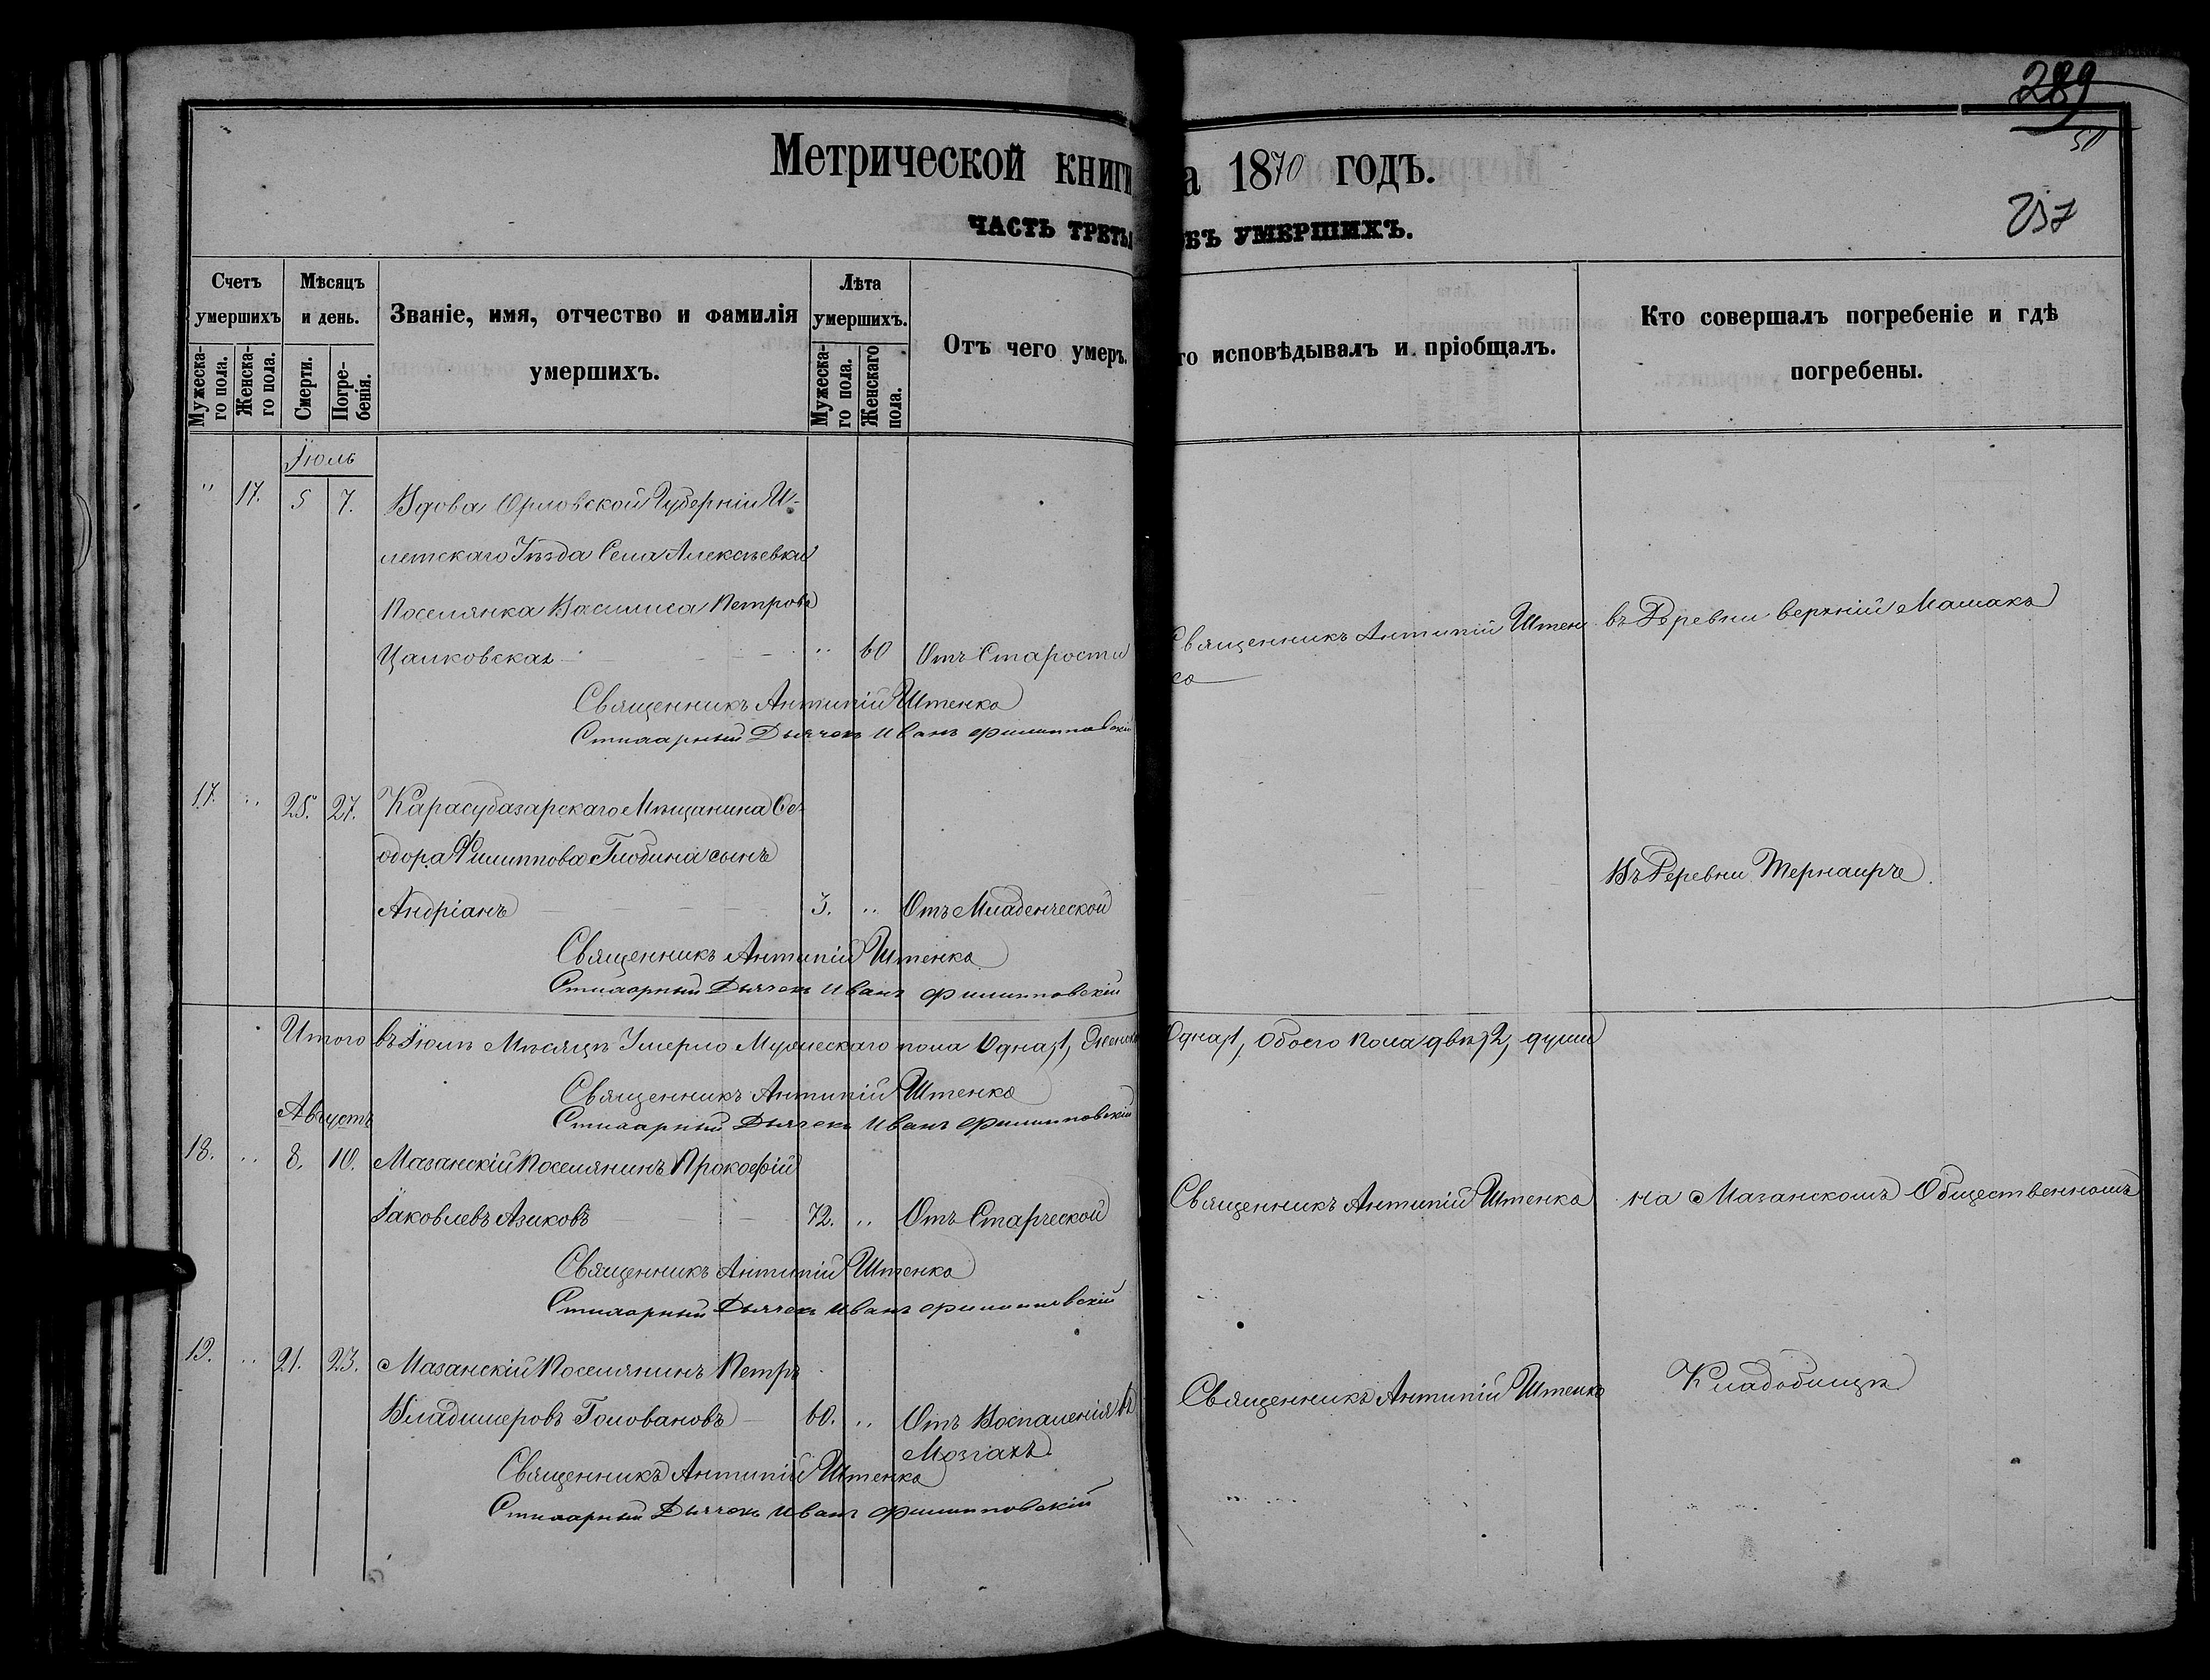 289
50
257
Метрической книги
а 1870 годъ.
ЧАСТЬ ТРЕТЬЯ
ОБЪ УМЕРШИХЪ.
Счетъ умершихъ
Мѣсяцъ и день.
Званіе, имя, отчество и фамилія умершихъ.
Лѣта умершихъ.
Отъ чего умеръ.
то исповѣдывалъ и пріобщалъ.
Кто совершалъ погребеніе и гдѣ погребены.
Мужеска-го пола.
Женска-го пола.
Смерти.
Погре-бенія.
Мужеска-го пола.
Женскаго пола.
Іюль
" 17. 5 7. Вдова Орловской Губерніи И-
летскаго Уѣзда Села Алексѣевки
Поселянка Василиса Петрова
Цаиковская " 60 Отъ Старости
Священникъ Антипій Штен
ко
въ Деревни верхній Мамака
Священникъ Антипій Штенко
Стихарный Дьячекъ Иванъ Филипповскій
17. " 25. 27. Карасубазарскаго Мѣщанина Ѳе-
одора Филиппова Глобина сынъ
Андріанъ 3. " Отъ Младенческой
Въ Деревни Тернаирче
Священникъ Антипій Штенко
Стихарный Дьячекъ Иванъ Филипповскій
Итого въ Іюлѣ Мѣсяцѣ Умерло Мужескаго пола Одна, 1, Женска
Одна, 1, Обоего Пола двѣ, 2, души
Священникъ Антипій Штенко
Стихарный Дьячекъ Иванъ Филипповскій
Августъ
18. " 8. 10. Мазанскій Поселянинъ Прокофій
Іаковлевъ Азиковъ 72. " Отъ Старческой
Священникъ Антипій Штенко
на Мазанскомъ Общественномъ
Священникъ Антипій Штенко
Стихарный Дьячекъ Иванъ Филипповскій
19. " 21. 23. Мазанскій Поселянинъ Петръ
Владимеровъ Головановъ 60. " Отъ Воспаленія въ
Мозгахъ
Священникъ Антипій Штенко
Кладобищѣ
Священникъ Антипій Штенко
Стихарный Дьячекъ Иванъ Филипповскій